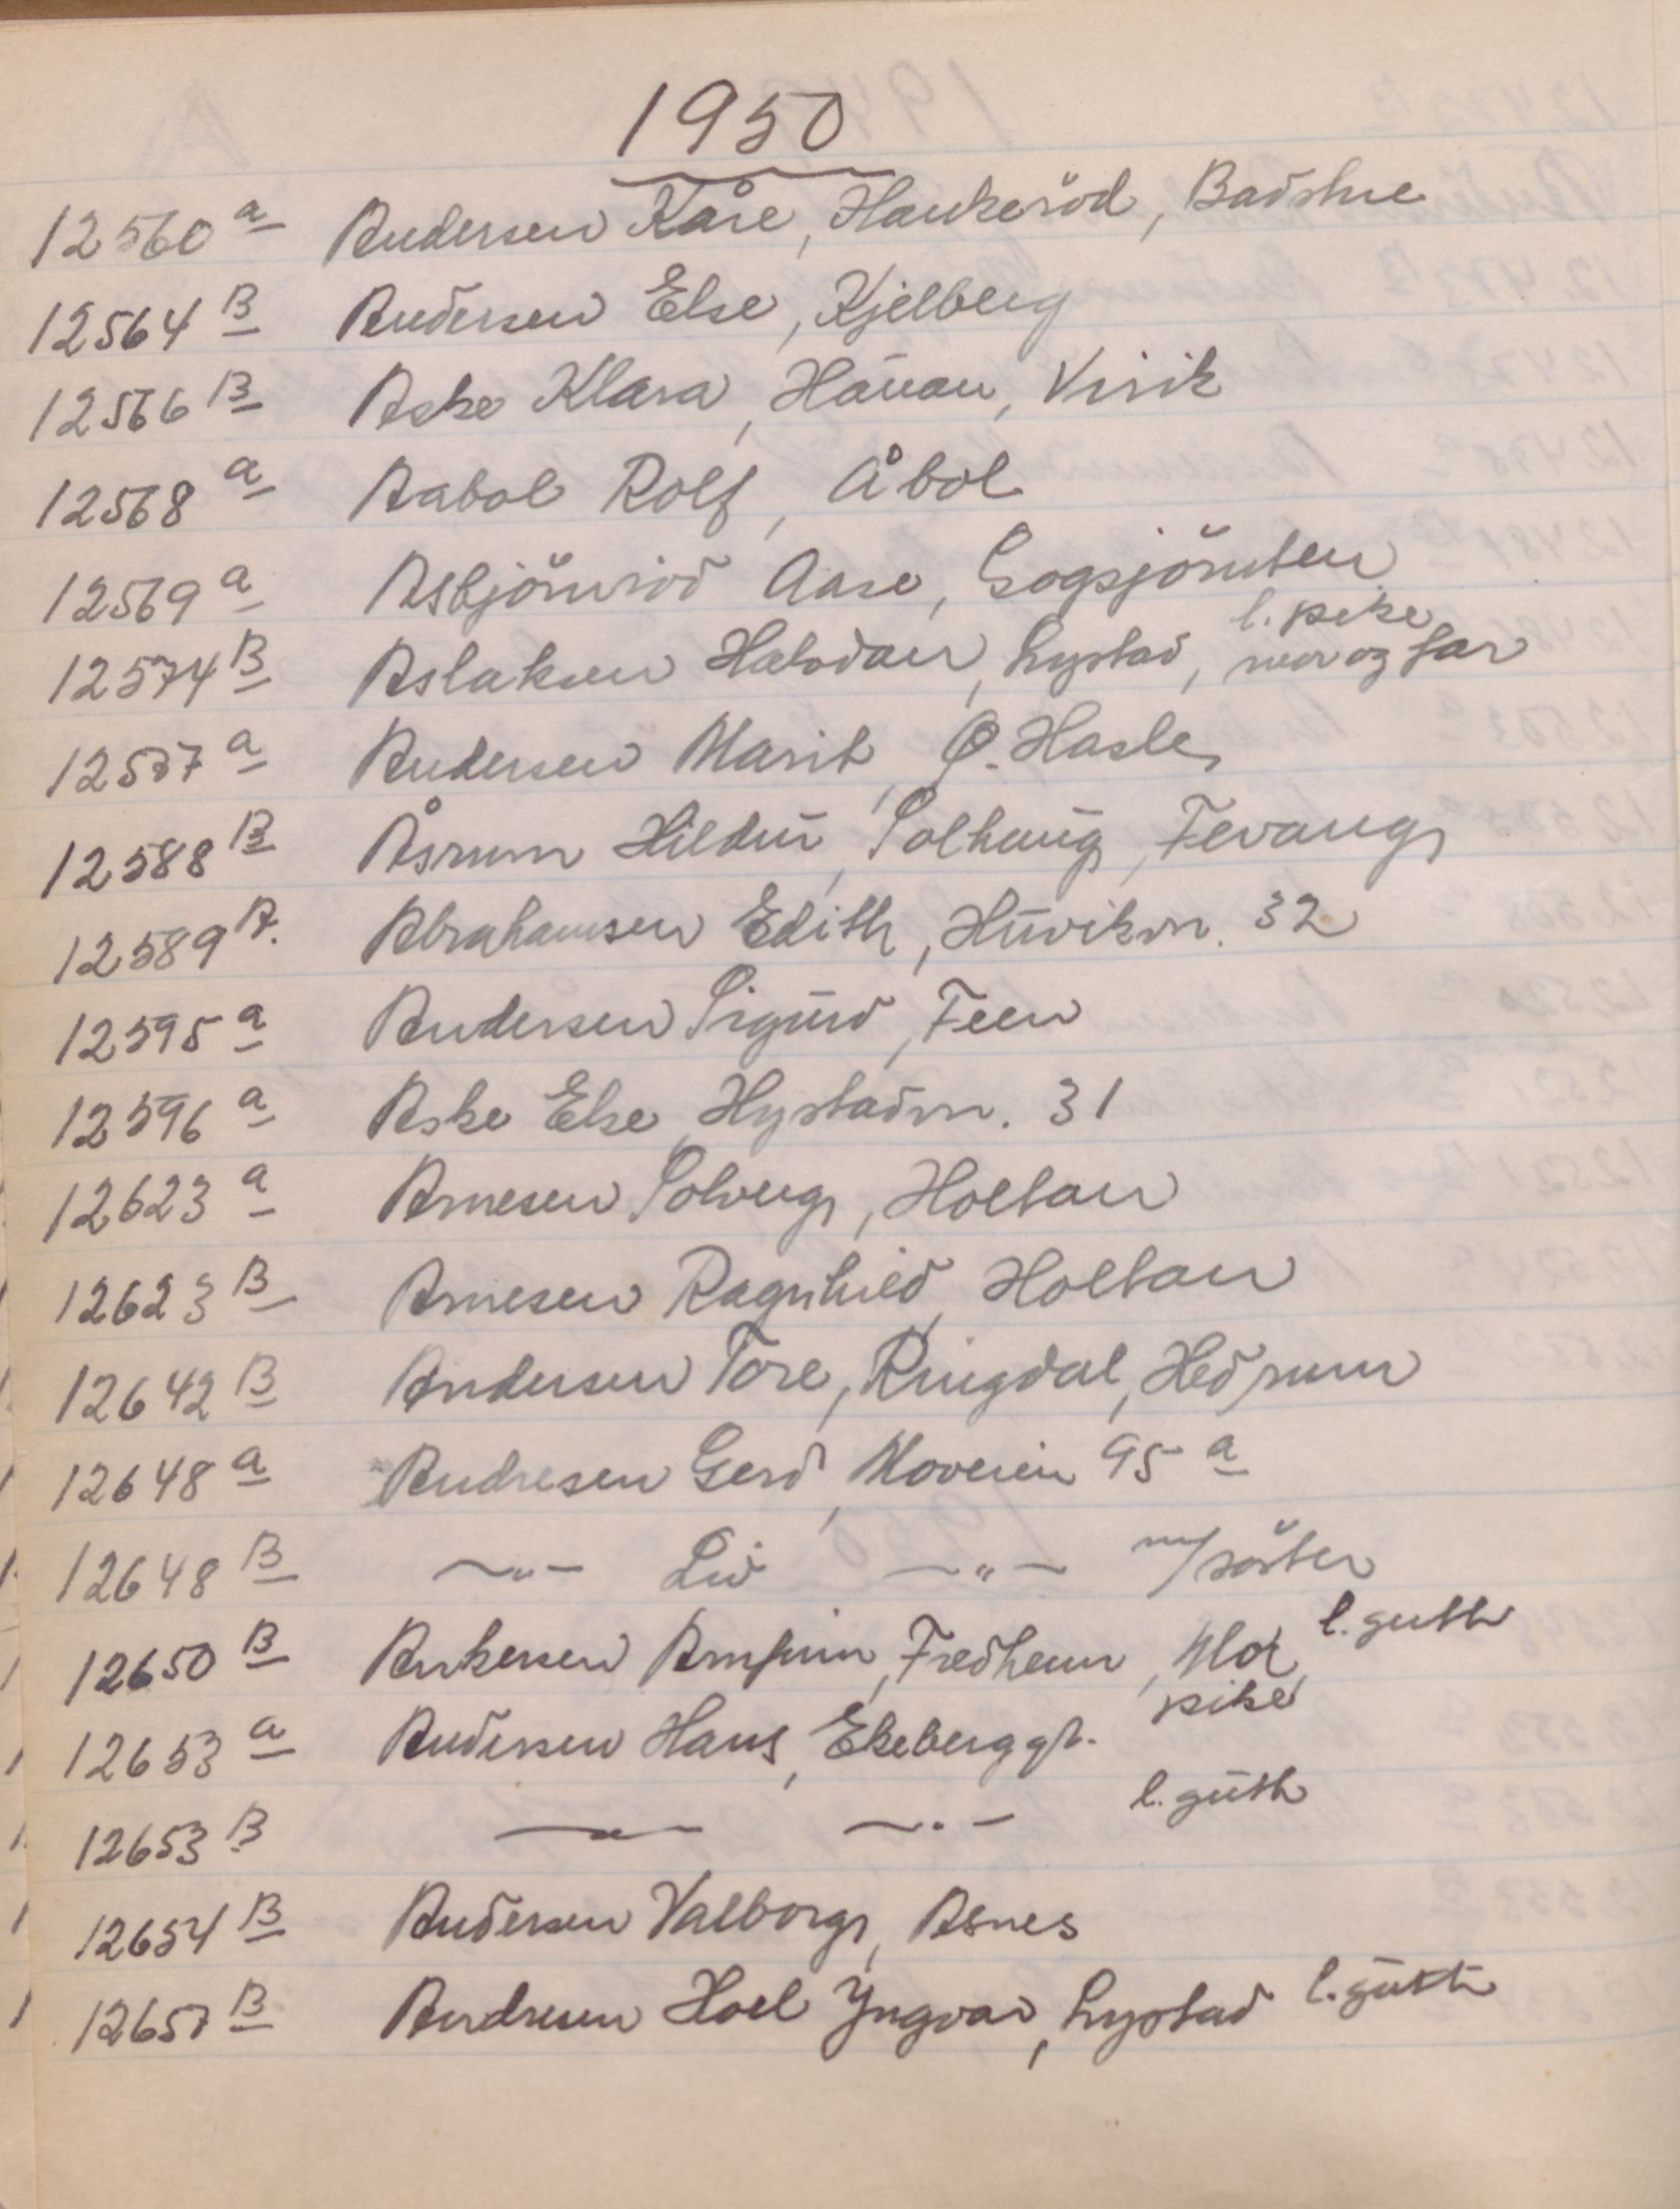 1950
12560 a Andersen Kåre, Haukeröd, Badstue
12564 B Andersen Else, Kjelberg
12566 B Aske Klara, Hauan, Virik
12568 a Aabol Rolf, Åbol
12569 a Asbjörnröd Aase, Gogsjörnten
l. pike
12574 B Aslaksen Halvdan, Lystad, mor og far
12577 a Andersen Marit, Ø. Hasle
12588 B Åsrum Hildur, Solhaug, Fevang
12589 A. Abrahamsen Edith, Huvikvn. 32
12595 a Andersen Sigurd, Feen
12596 a Aske Else, Hystadvn. 31
12623 a Arnesen Solveig, Holtan
12623 B Arnesen Ragnhild, Holtan
12642 B Andersen Tore, Ringdal, Hedrum
12648 a Andresen Gerd, Moveien 95 a
12648 B —"— Liv —"— m/söster
12650 B Ankersen Arnfinn, Fredheim, Mor, l. gutt
pike
12653 a Andersen Hans, Ekeberggt.
12653 B —"— —"— l. gutt
12654 B Andersen Valborg, Asnes
12657 B Andresen Hoel Yngvar, Lystad l. gutt